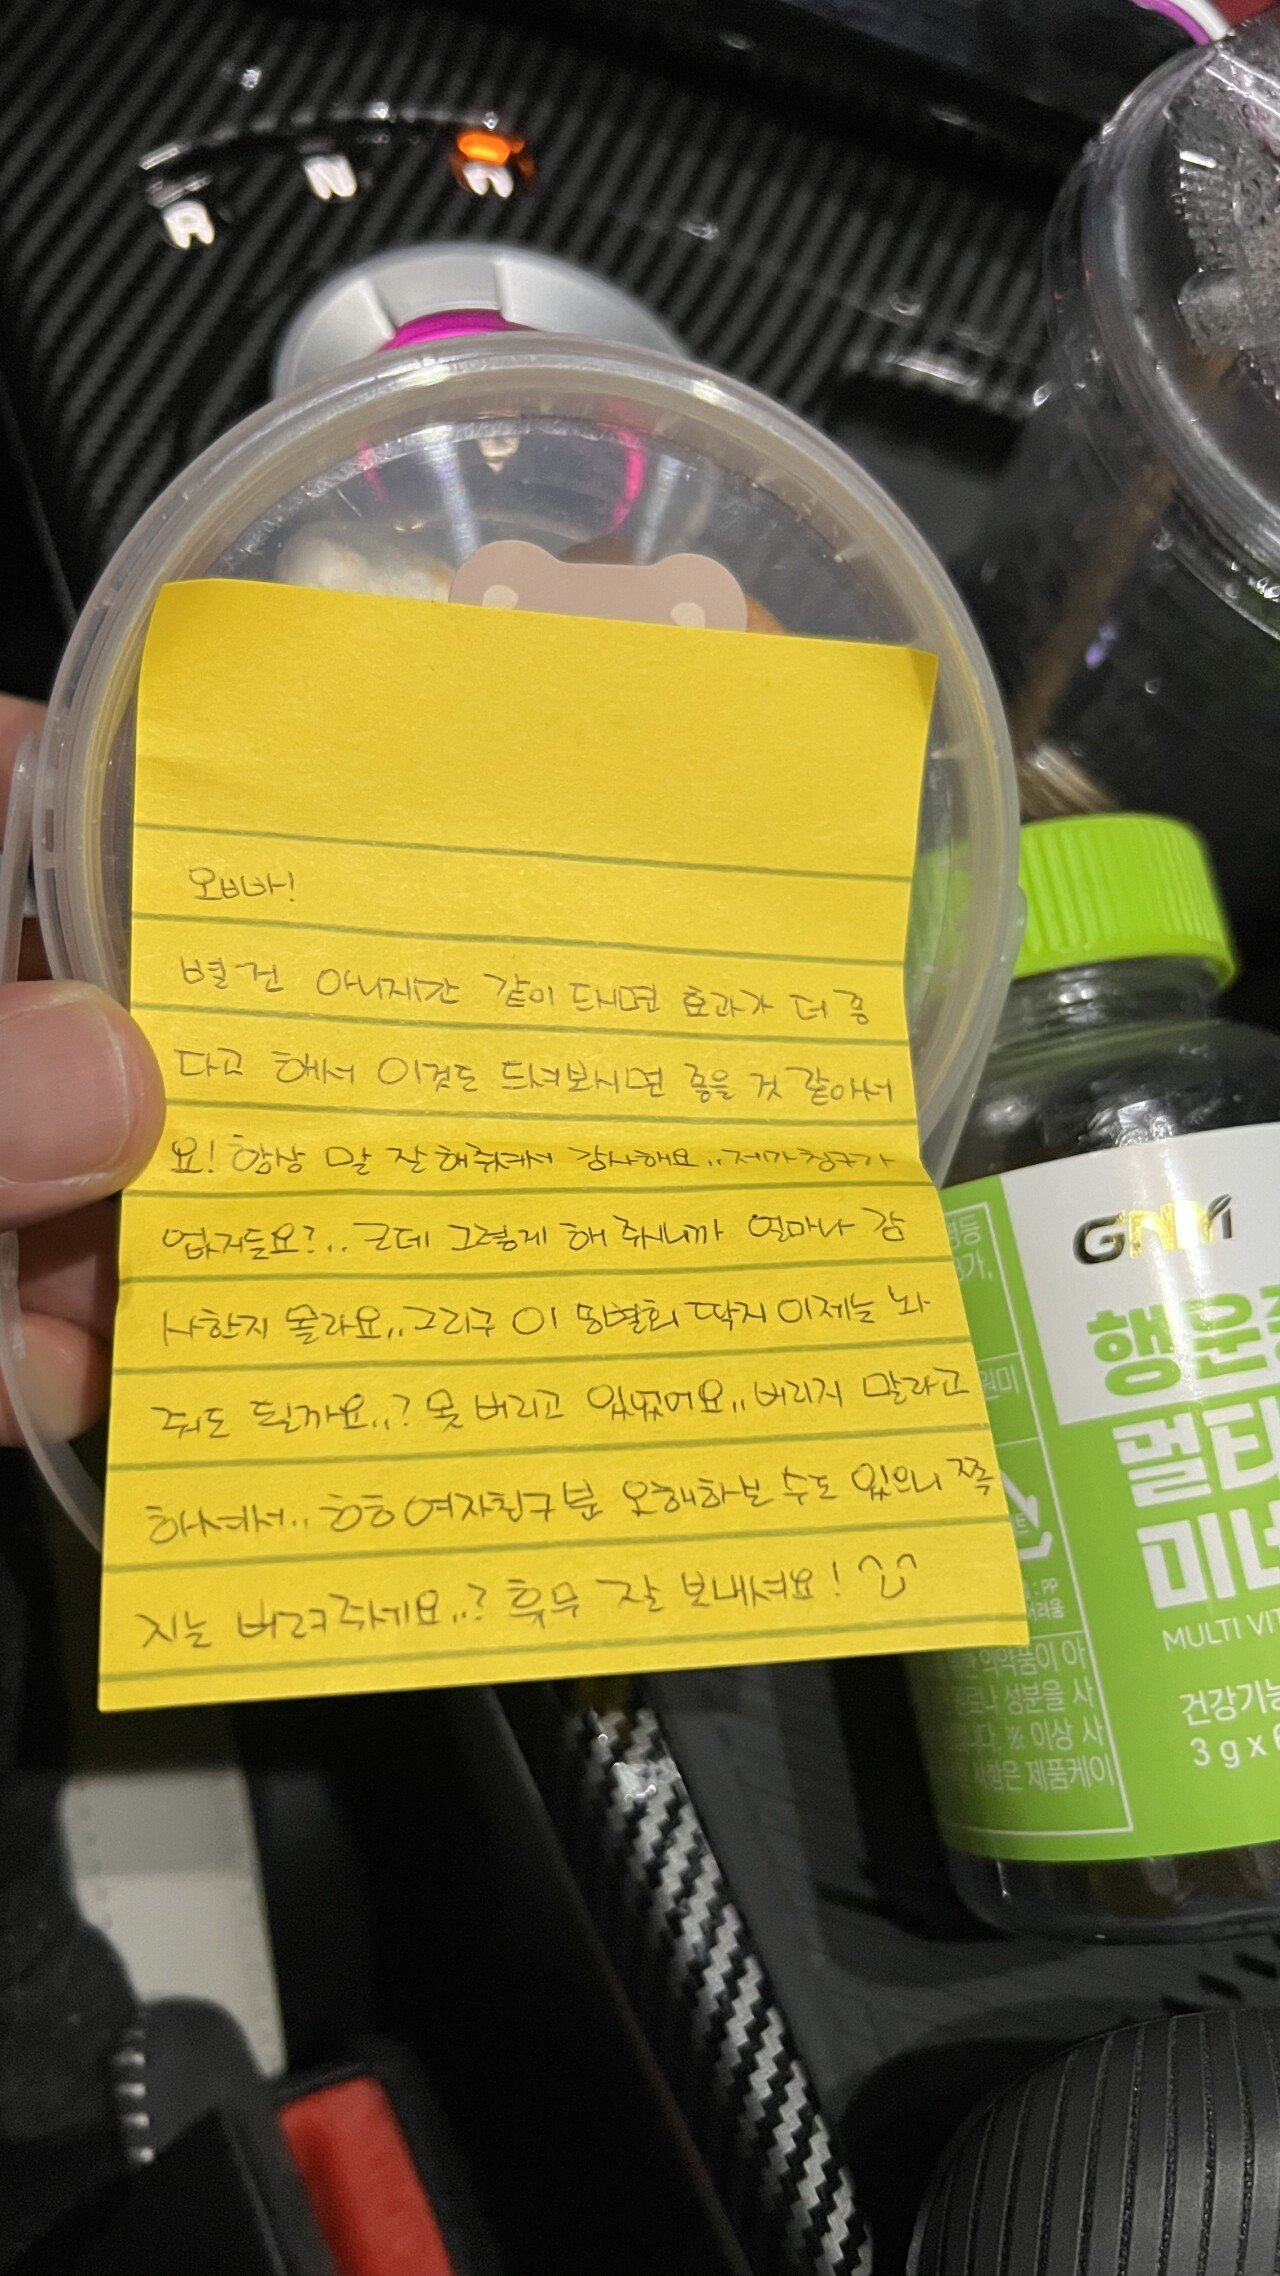 R
N
오빠!
별건 아니지만 같이 드시면 효과가 더 좋
다고 해서 이것도 드셔보시면 좋을 것 같아서
요! 항상 말 잘 해주셔서 감사해요..제가 친구가
없거든요?.. 근데 그렇게 해 주시니까 얼마나 감
사한지 몰라요..그리구 이 망할회 딱지 이제는 놔
줘도 될까요..? 못 버리고 있었어요..버리지 말라고
하셔서.. 흐흐 여자친구분 오해하실 수도 있으니 쪽
지는 버려주세요..? 휴무 잘 보내셔요!
GNM
행운
멀티
미네
MULTI VIT
건강기능
3 g x 6
의약품이 아
성분을 사
※ 이상 사
은 제품케이